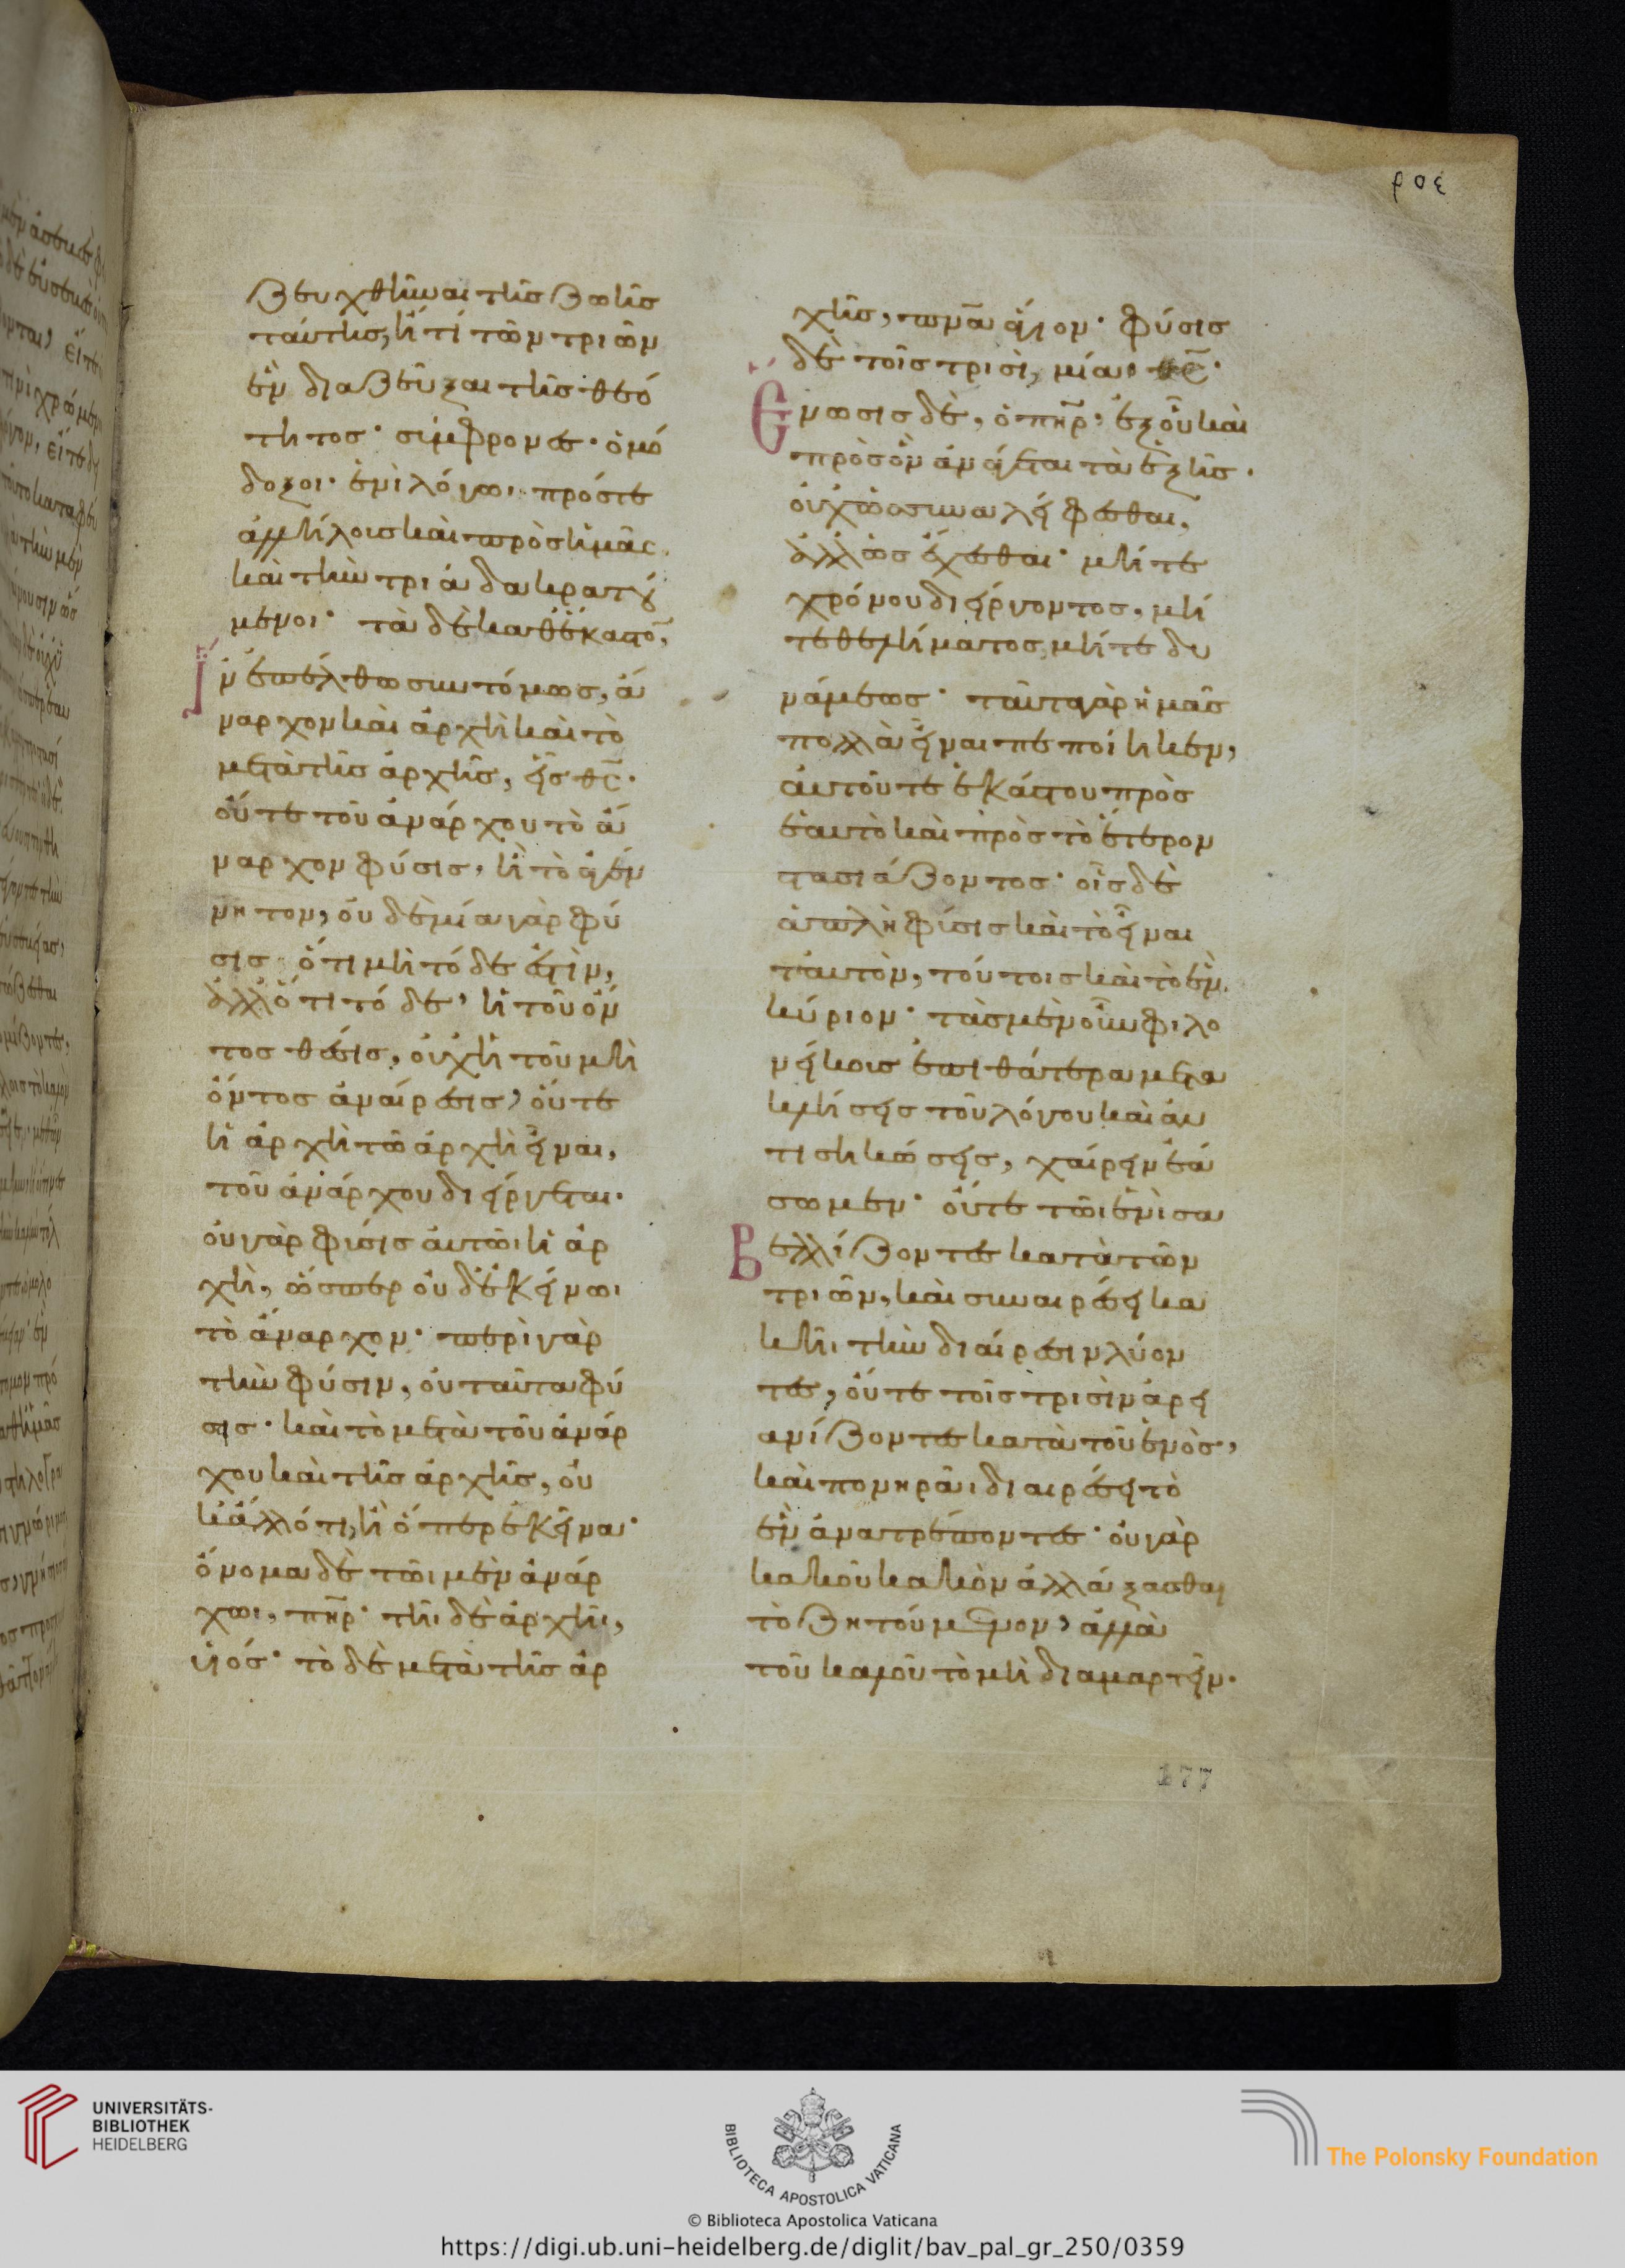 ζευχθῆναι τῆς ζωῆς
ταύτης, ἤ τι τῶν τριῶν
ἓν διαζεῦξαι τῆς θεό
τητος· σύμφρονες· ὁμό
δοξοι· ἑνὶ λόγωι πρός τε
ἀλλήλους καὶ πρὸς ἡμᾶς
καὶ τὴν τριάδα κρατού
μενοι· τὰ δὲ καθέκαστον,
ἵν ἐπέλθω συντόμως, ἄ
ναρχον καὶ ἀρχὴ καὶ τὸ
μετὰ τῆς ἀρχῆς, εἷς θ̅ς̅·
οὔτε τοῦ ἀνάρχου τὸ ἄ
ναρχον φύσις, ἢ τὸ ἀγέν
νητον, οὐδεμία γὰρ φύ
σις ὅτι μὴ τόδε ἐστὶν,
ἀλλ ὅτι τόδε, ἡ τοῦ ὄν
τος θέσις, οὐχ ἡ τοῦ μὴ
ὄντος ἀναίρεσις, οὔτε
ἡ ἀρχὴ τῶ ἀρχὴ εἶναι,
τοῦ ἀνάρχου διείργεται·
οὐ γὰρ φύσις αὐτῶι ἡ ἀρ
χὴ, ὥσπερ οὐδ ἐκείνωι
τὸ ἄναρχον· περὶ γὰρ
τὴν φύσιν, οὐ ταῦτα φύ
σις· καὶ τὸ μετὰ τοῦ ἀνάρ
χου καὶ τῆς ἀρχῆς, οὐ
κ ἄλλό τι, ἢ ὅπερ ἐκεῖνα·
ὄνομα δὲ τῶι μὲν ἀνάρ
χωι, π̅η̅ρ̅· τῆι δὲ ἀρχῆι,
υἱός· τὸ δὲ μετὰ τῆς ἀρ
χῆς, π̅ν̅α̅ ἅγιον· φύσις
δὲ τοῖς τρισὶ, μία, θ̅ς̅·
Ἕνωσις δὲ, ὁ π̅η̅ρ̅· ἐξ οὗ καὶ
πρὸς ὃν ἀνάγεται τὰ ἑξῆς·
οὐχ ὡς συναλείφεσθαι,
ἀλλ ὡς ἔχεσθαι· μήτε
χρόνου διείργοντος, μή
τε θελήματος, μήτε δυ
νάμεως· ταῦτα γὰρ ἡμᾶς
πολλὰ εἶναι πεποίηκεν,
αὐτοῦ τε ἑκάστου πρὸς
ἑαυτὸ καὶ πρὸς τὸ ἕτερον
στασιάζοντος· οἷς δὲ
ἁπλὴ φύσις καὶ τὸ εἶναι
ταυτὸν, τούτοις καὶ τὸ ἓν
κύριον· τὰς μὲν οὖν φιλο
νείκους ἐπὶ θάτερα μετα
κλήσεις τοῦ λόγου καὶ ἀν
τισηκώσεις, χαίρειν ἐά
σωμεν· οὔτε τῶι ἑνὶ σα
βελλίζοντες κατὰ τῶν
τριῶν, καὶ συναιρέσει κα
κῆι τὴν διαίρεσιν λύον
τες, οὔτε τοῖς τρισὶν ἀρει
ανίζοντες κατὰ τοῦ ἑνὸς,
καὶ πονηρᾶι διαιρέσει τὸ
ἓν ἀνατρέποντες· οὐ γὰρ
κακοῦ κακὸν ἀλλάξασθαι
τὸ ζητούμενον, ἀλλὰ
τοῦ καλοῦ τὸ μὴ διαμαρτεῖν·
ροε
177
UNIVERSITÄTS-
BIBLIOTHEK
HEIDELBERG
BIBLIOTECA APOSTOLICA VATICANA
The Polonsky Foundation
© Biblioteca Apostolica Vaticana
https://digi.ub.uni-heidelberg.de/diglit/bav_pal_gr_250/0359